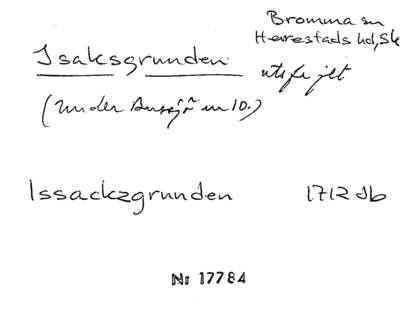 Bromma sn
Herrestads hd, Sk
Isaksgrunden
(under Bussjö nr 10.)
Issackzgrunden 1712 Jb
Nr 17784